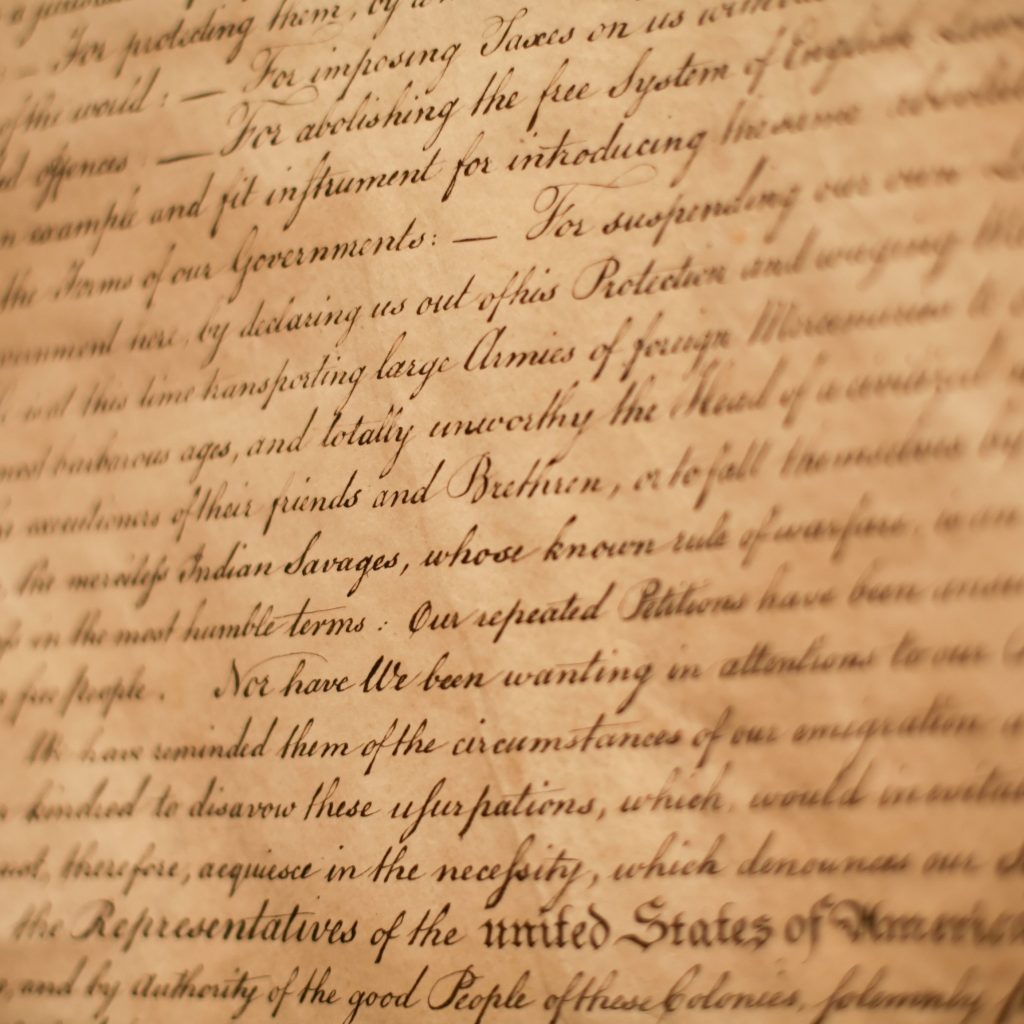 For protecting them, by
of the world : — For imposing Taxes on us
offences : — For abolishing the free System of English
example and fit instrument for introducing the same
the Forms of our Governments : — For suspending our own
here, by declaring us out of his Protection and waging
is at this time transporting large Armies of foreign Mercenaries to
most barbarous ages, and totally unworthy the Head of a civilized
executioners of their friends and Brethren, or to fall themselves by
the merciless Indian Savages, whose known rule of warfare, is an
in the most humble terms : Our repeated Petitions have been
free People . Nor have We been wanting in attentions to our
We have reminded them of the circumstances of our emigration
kindred to disavow these usurpations, which would
therefore, acquiesce in the necessity, which denounces our
the Representatives of the united States of America
and by Authority of the good People of these Colonies, solemnly